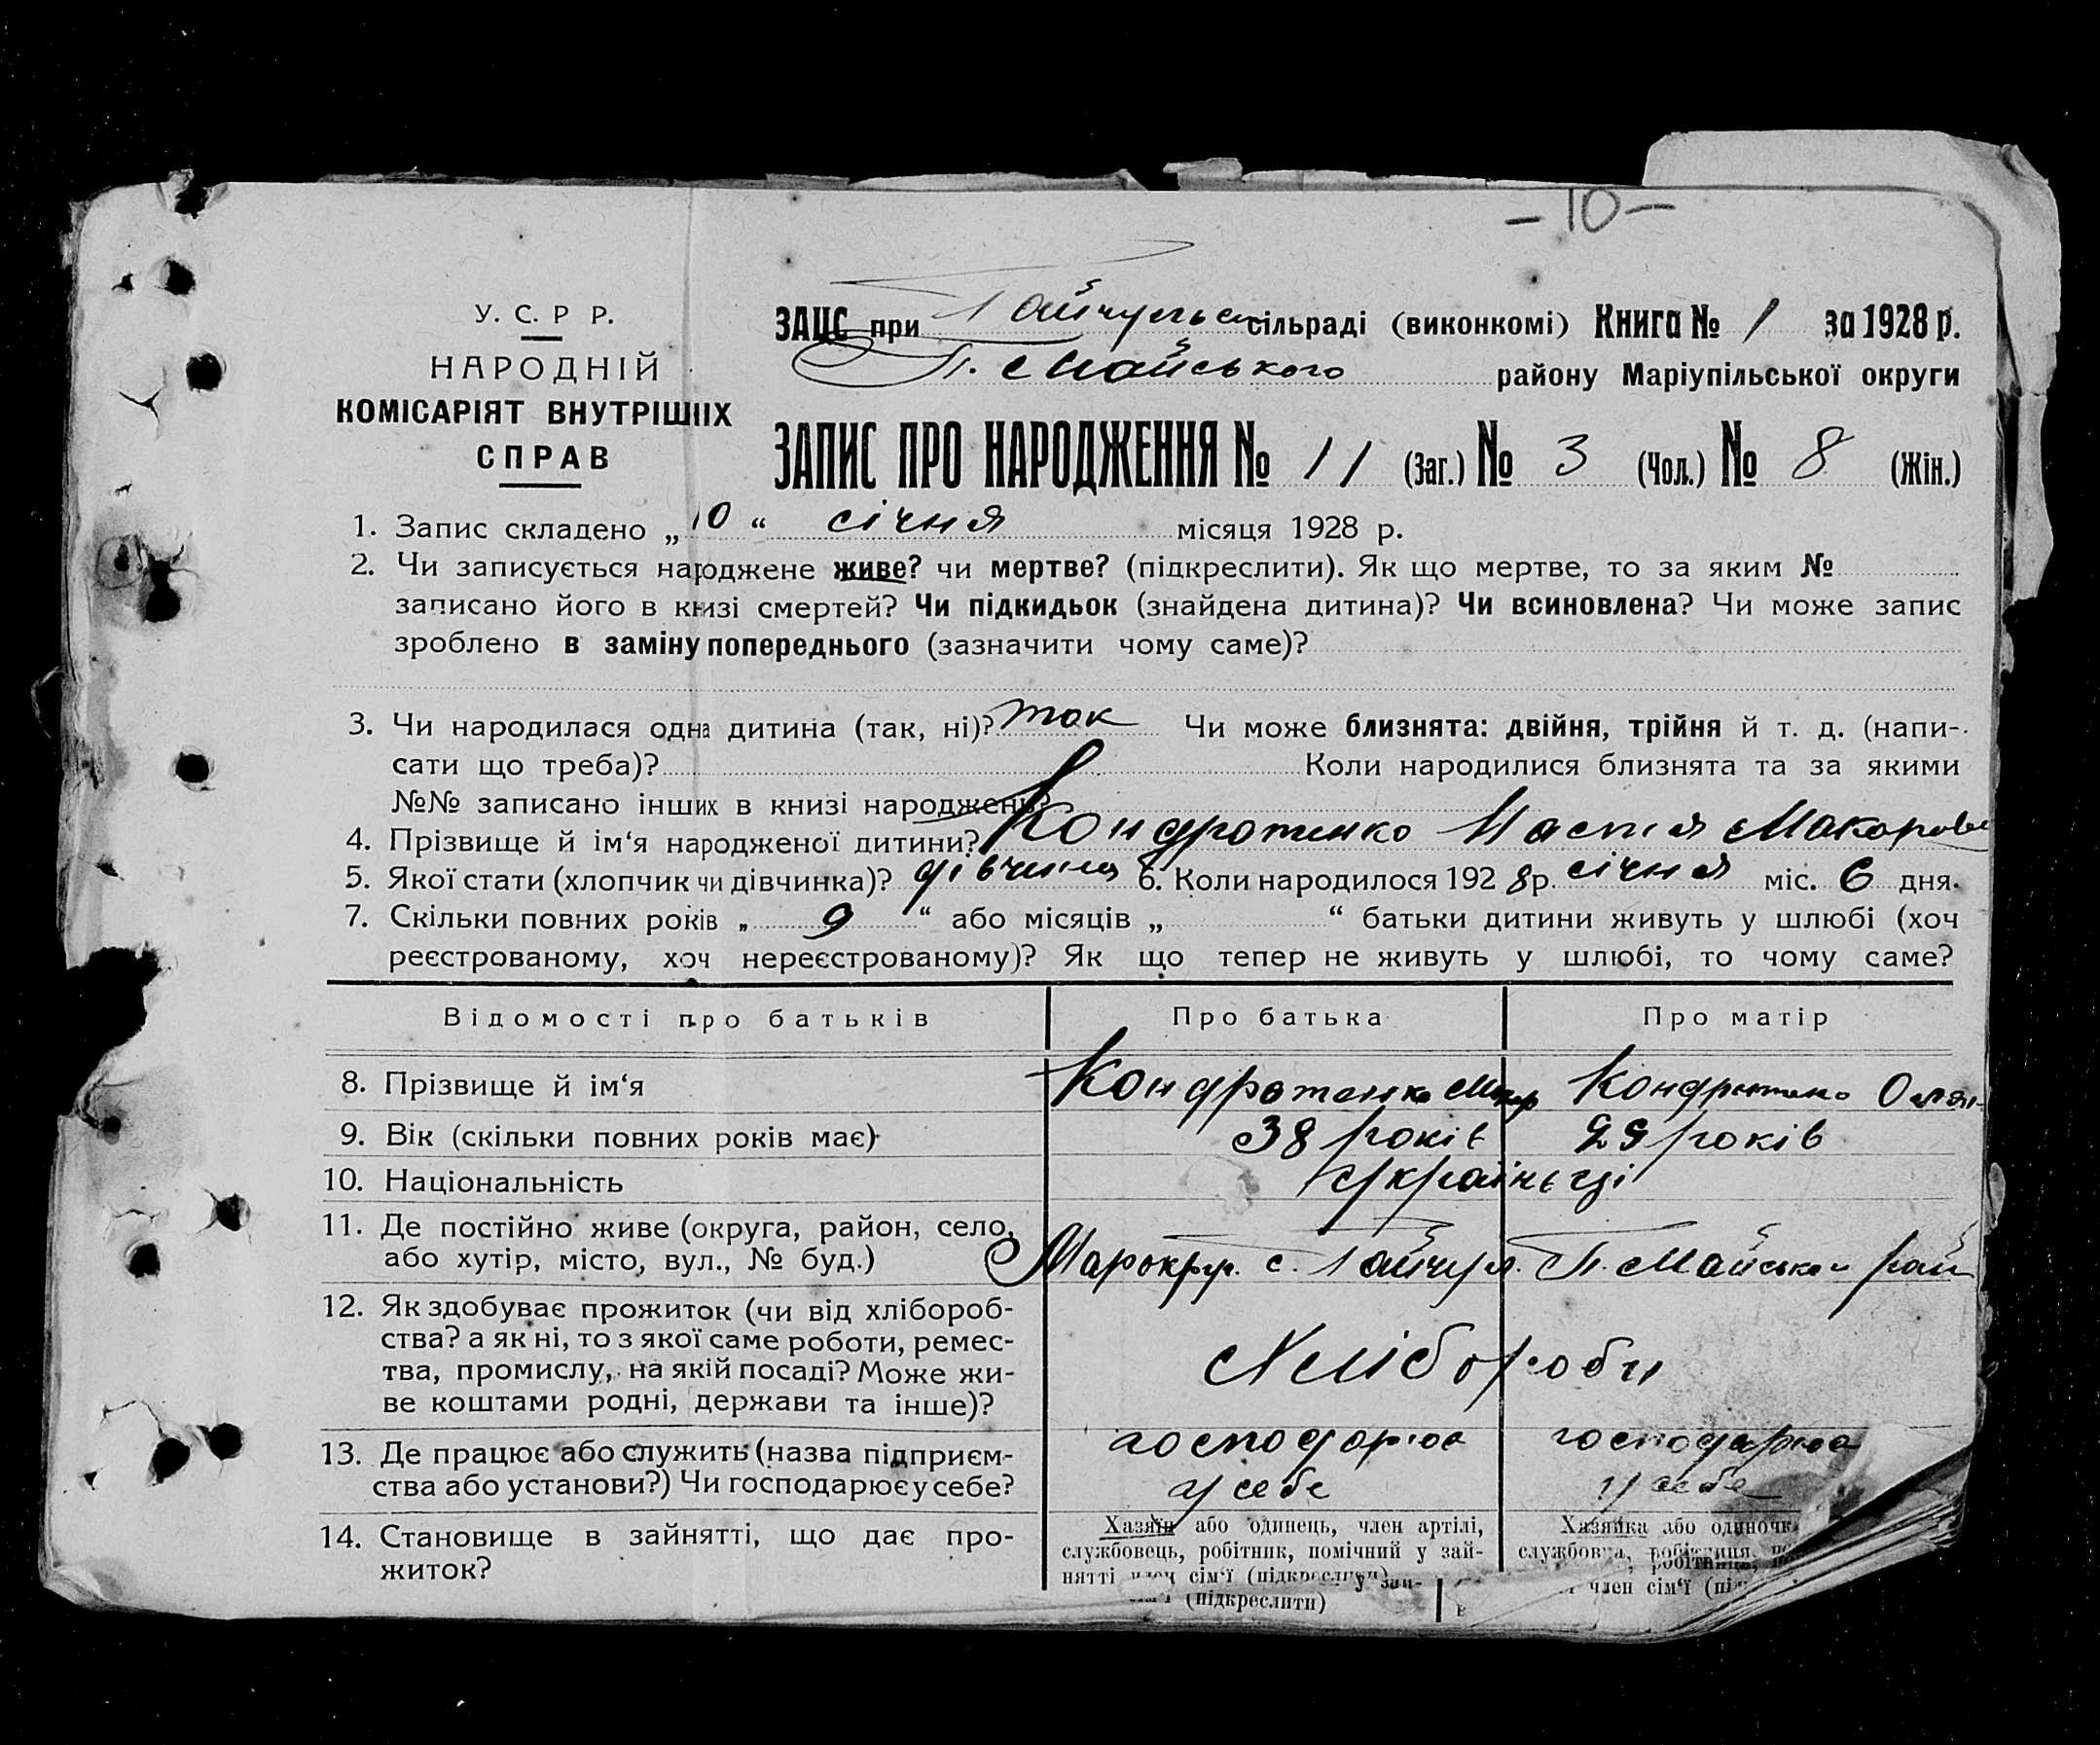 -10-
У. С. Р Р.
НАРОДНІЙ
КОМІСАРІЯТ ВНУТРІШНІХ
СПРАВ
ЗАЦС при Гайчульск сільраді (виконкомі) Книга № 1 за 1928 р.
П. Майського району Маріупільської округи
ЗАПИС ПРО НАРОДЖЕННЯ № 11 (Заг.) № 3 (Чол.) № 8 (Жін.)
1. Запис складено „10“ січня місяця 1928 р.
2. Чи записується народжене живе? чи мертве? (підкреслити). Як що мертве, то за яким №
записано його в книзі смертей? Чи підкидьок (знайдена дитина)? Чи всиновлена? Чи може запис
зроблено в заміну попереднього (зазначити чому саме)?
3. Чи народилася одна дитина (так, ні)? так Чи може близнята: двійня, трійня й т. д. (напи-
сати що треба)? Коли народилися близнята та за якими
№№ записано інших в книзі народжень?
4. Прізвище й ім‘я народженої дитини? Кондратенко Настя Макаровн
5. Якої стати (хлопчик чи дівчинка)? дівчина 6. Коли народилося 1928 р. січня міс. 6 дня.
7. Скільки повних років „ 9 “ або місяців „ “ батьки дитини живуть у шлюбі (хоч
реєстрованому, хоч нереєстрованому)? Як що тепер не живуть у шлюбі, то чому саме?
Відомості про батьків Про батька Про матір
8. Прізвище й ім‘я Кондратенко Макар Кондратенко
9. Вік (скільки повних років має) 38 років 29 років
10. Національність Україньці
11. Де постійно живе (округа, район, село,
або хутір, місто, вул., № буд.) Марокр. с. Гайчул. П. Майськой рай
12. Як здобуває прожиток (чи від хлібороб-
ства? а як ні, то з якої саме роботи, ремес-
тва, промислу, на якій посаді? Може жи-
ве коштами родні, держави та інше)? Хлібороби
13. Де працює або служить (назва підприєм-
ства або установи?) Чи господарює у себе? господарює у себе господарює у себе
14. Становище в зайнятті, що дає про-
житок?
Хазяїн або одинець, член артілі,
службовець, робітник, помічний у зай-
нятті член сім‘ї (підкреслити)
(підкреслити)
Хазяйка або одиночк
службовка, робітниця,
член сім‘ї